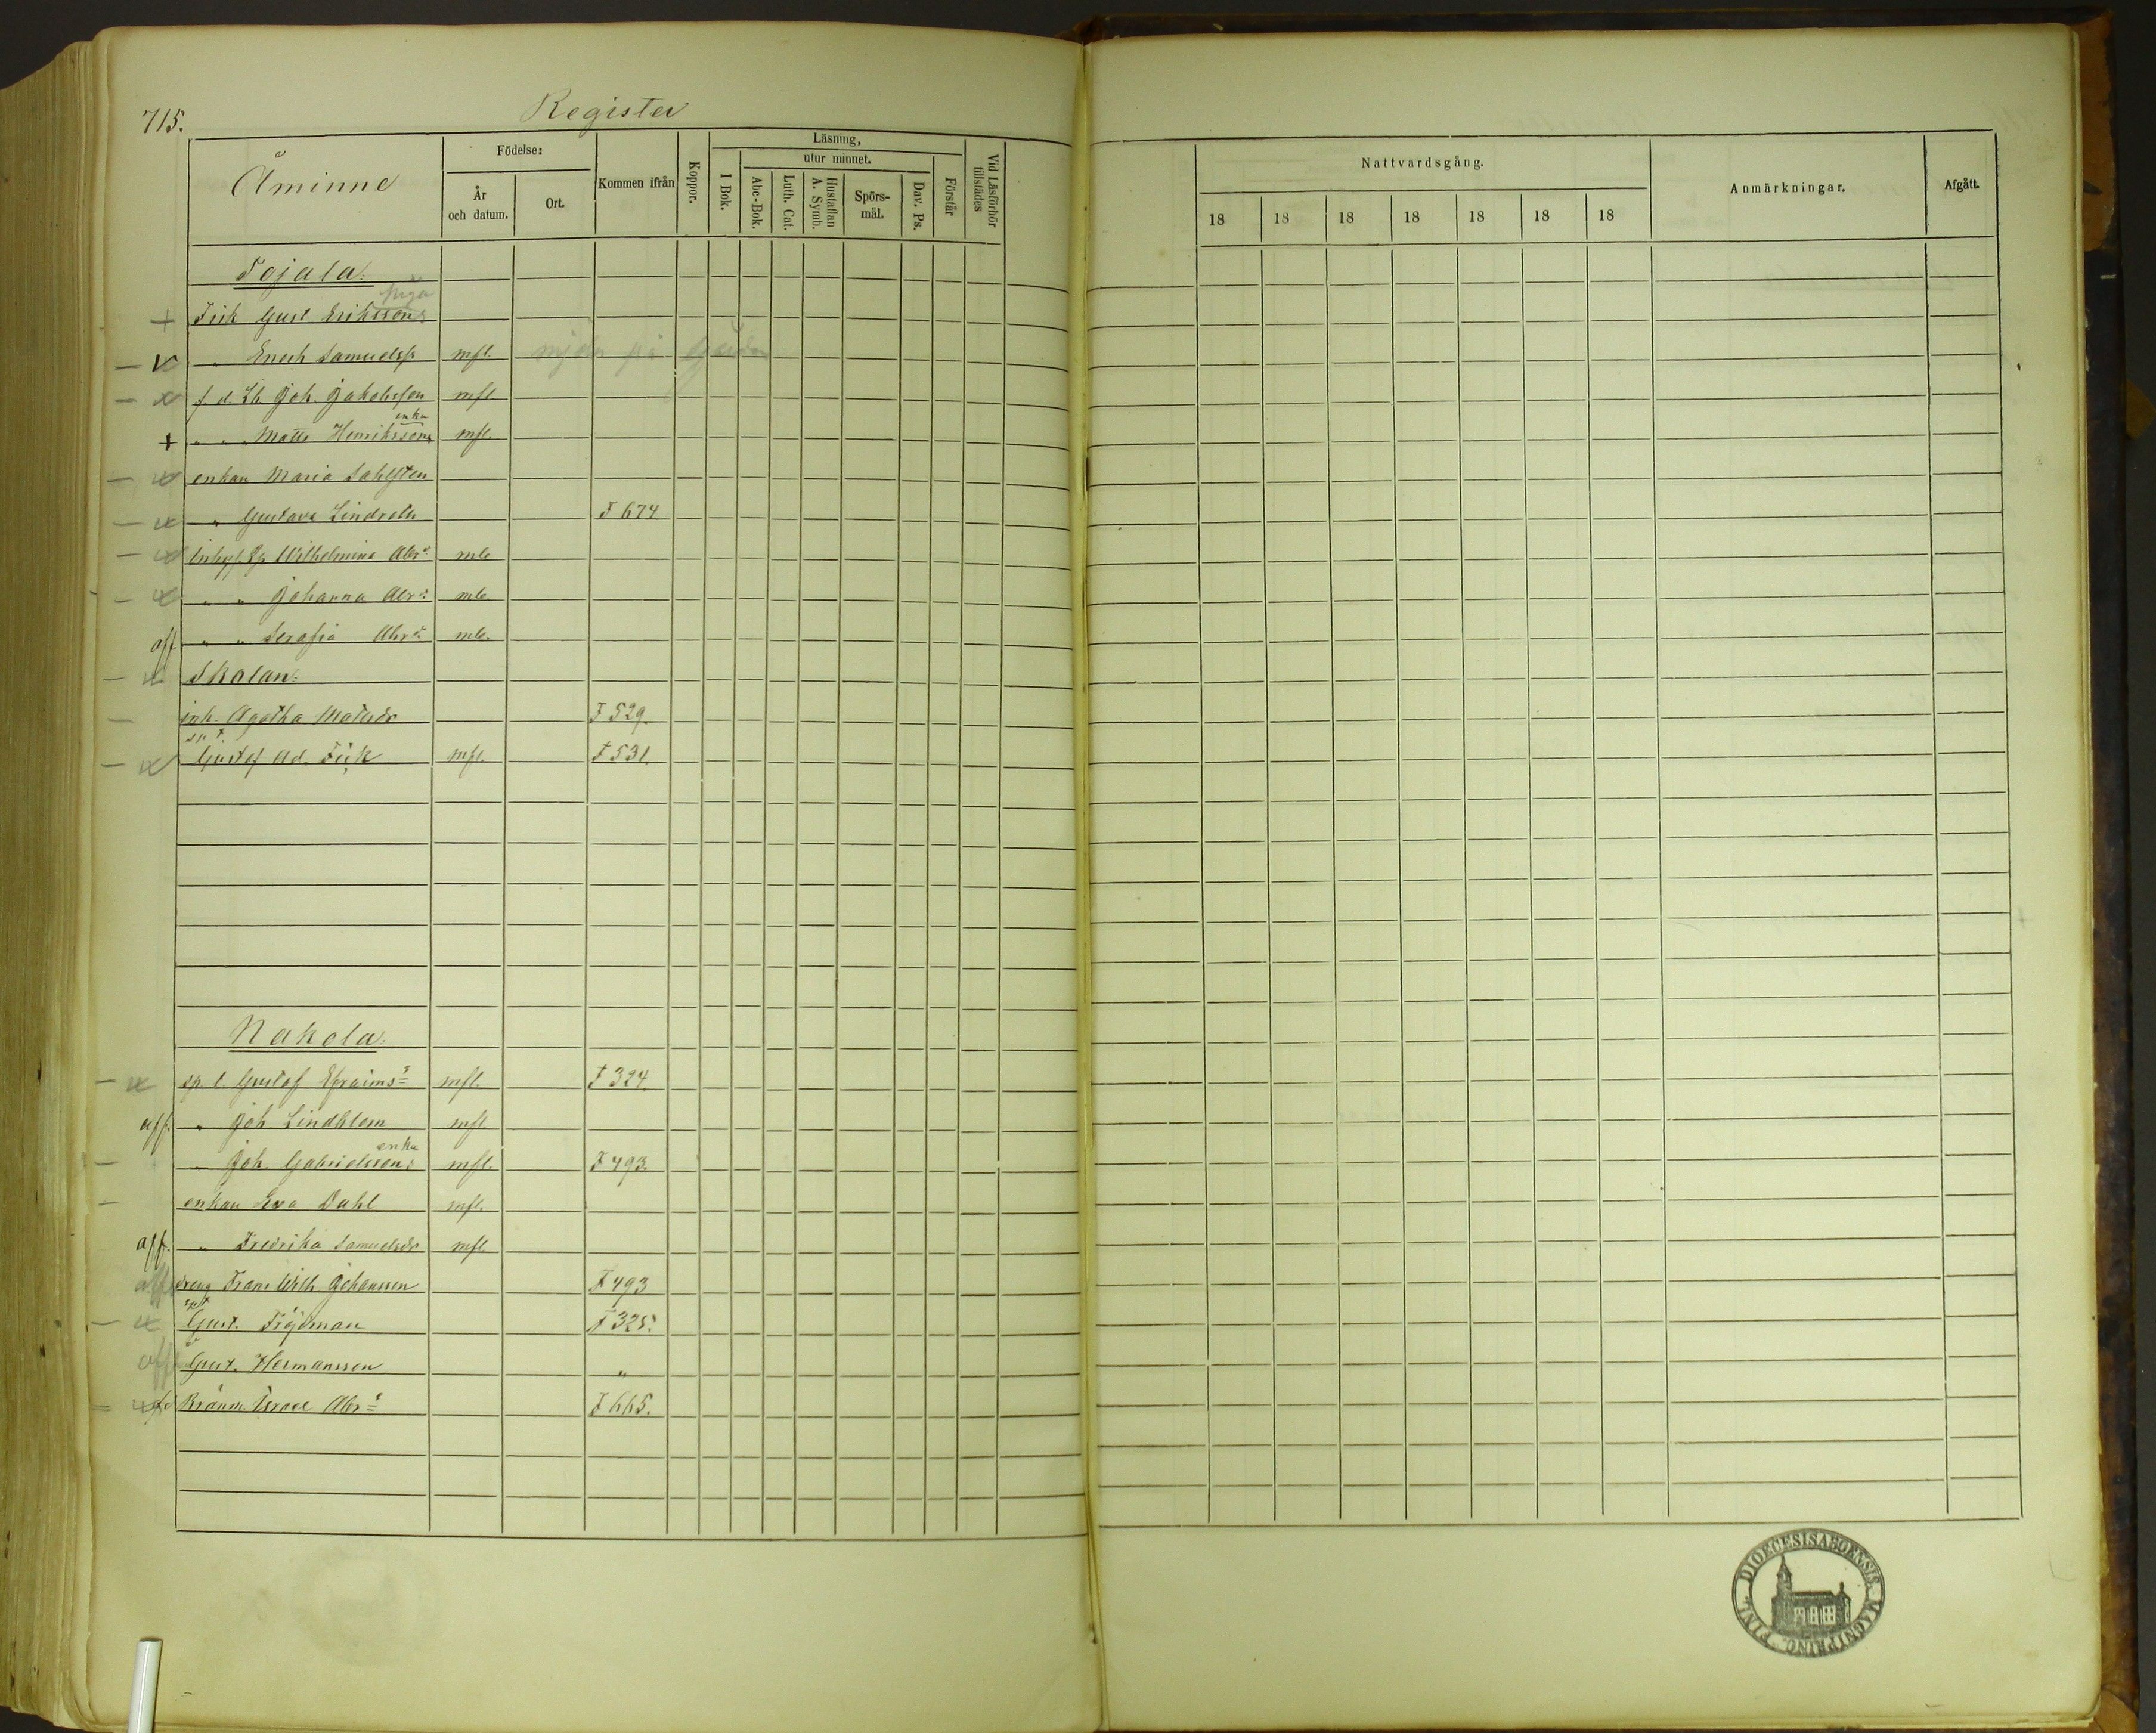 715.
Register
Åminne
Födelse:
År och datum.
Ort.
Kommen ifrån
Koppor.
Läsning,
I Bok.
utur minnet.
Abc-Bok.
Luth. Cat.
Hustaflan A. Symb.
Spörsmål.
Dav. Ps.
Förstår
Vid Läsförhör tillstädes
Nattvardsgång.
18 18 18 18 18 18 18
Anmärkningar.
Afgått.
Tojala.
piga
+ Fisk Gust Erikssons
" Enoch Samuelss mfl.
f. d. Lb Joh. Jakobsson mfl.
enka
+ " " Matts Henrikssons mfl.
enkan Maria Sahlsten
" Gustava Lindroth F 674
Wilhelmina Abrd mle
" " Johanna Abrd mle
aff " " Serafia Abrd mle.
Skolan.
inh. Agatha Matsdr F 529.
sp. t.
Gustaf Ad. Fisk mfl. F 531.
Nakola.
sp t. Gustaf Efraims mfl. F 324.
aff. " Joh Lindblom mfl
enka
Joh. Gabrielssons mfl. F 493.
enkan Eva Dahl mfl.
aff. " Fredrika Samuelsdr mfl
aff dreng Frans Wilh Johansson F 493
spt
Gust. Fröjdman F 325.
aff Gust. Hermansson "
Bränm. Israel Abrs F 665.
DIOECESIS ABOENSIS. MAGNI PRINC. FINL.